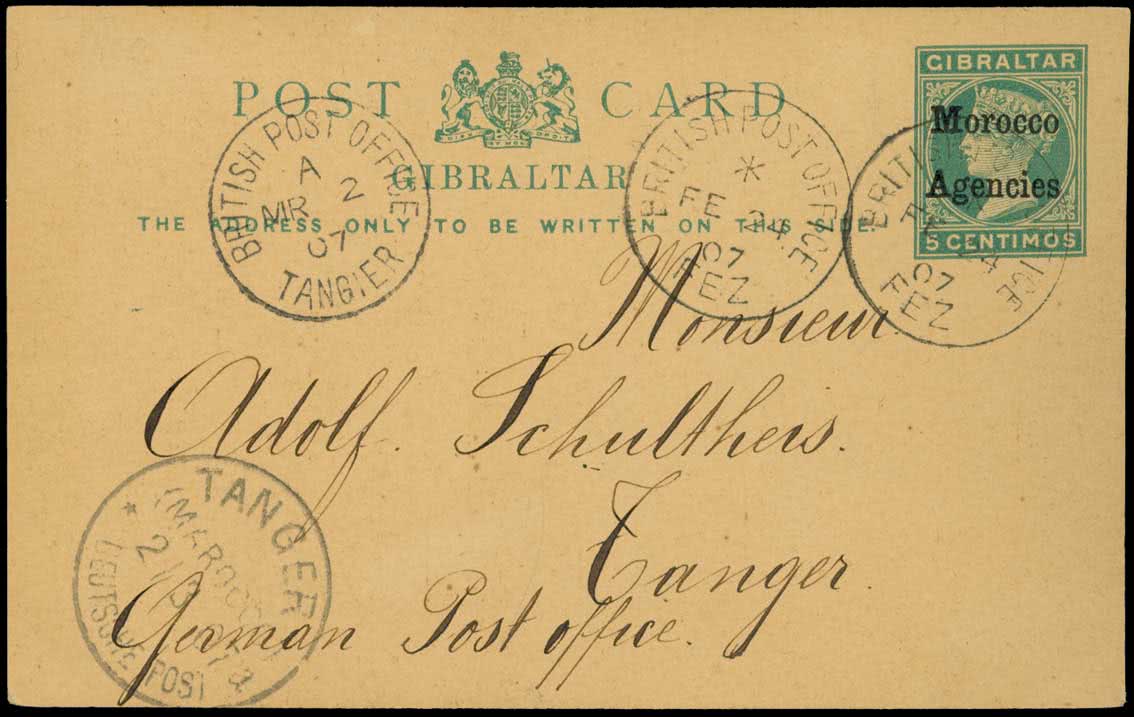 POST CARD
GIBRALTAR
THE ADDRESS ONLY TO BE WRITTEN ON THIS SIDE.
GIBRALTAR
Morocco
Agencies
5 CENTIMOS
BRITISH POST OFFICE
A
MR 2
07
TANGIER
BRITISH POST OFFICE
*
FE 24
07
FEZ
BRITISH OFFICE
FE 24
07
FEZ
Monsieur
Adolf. Schultheis.
Tanger.
German Post office.
TANGER
(MAROCCO)
2
DEUTSCHE POST
a